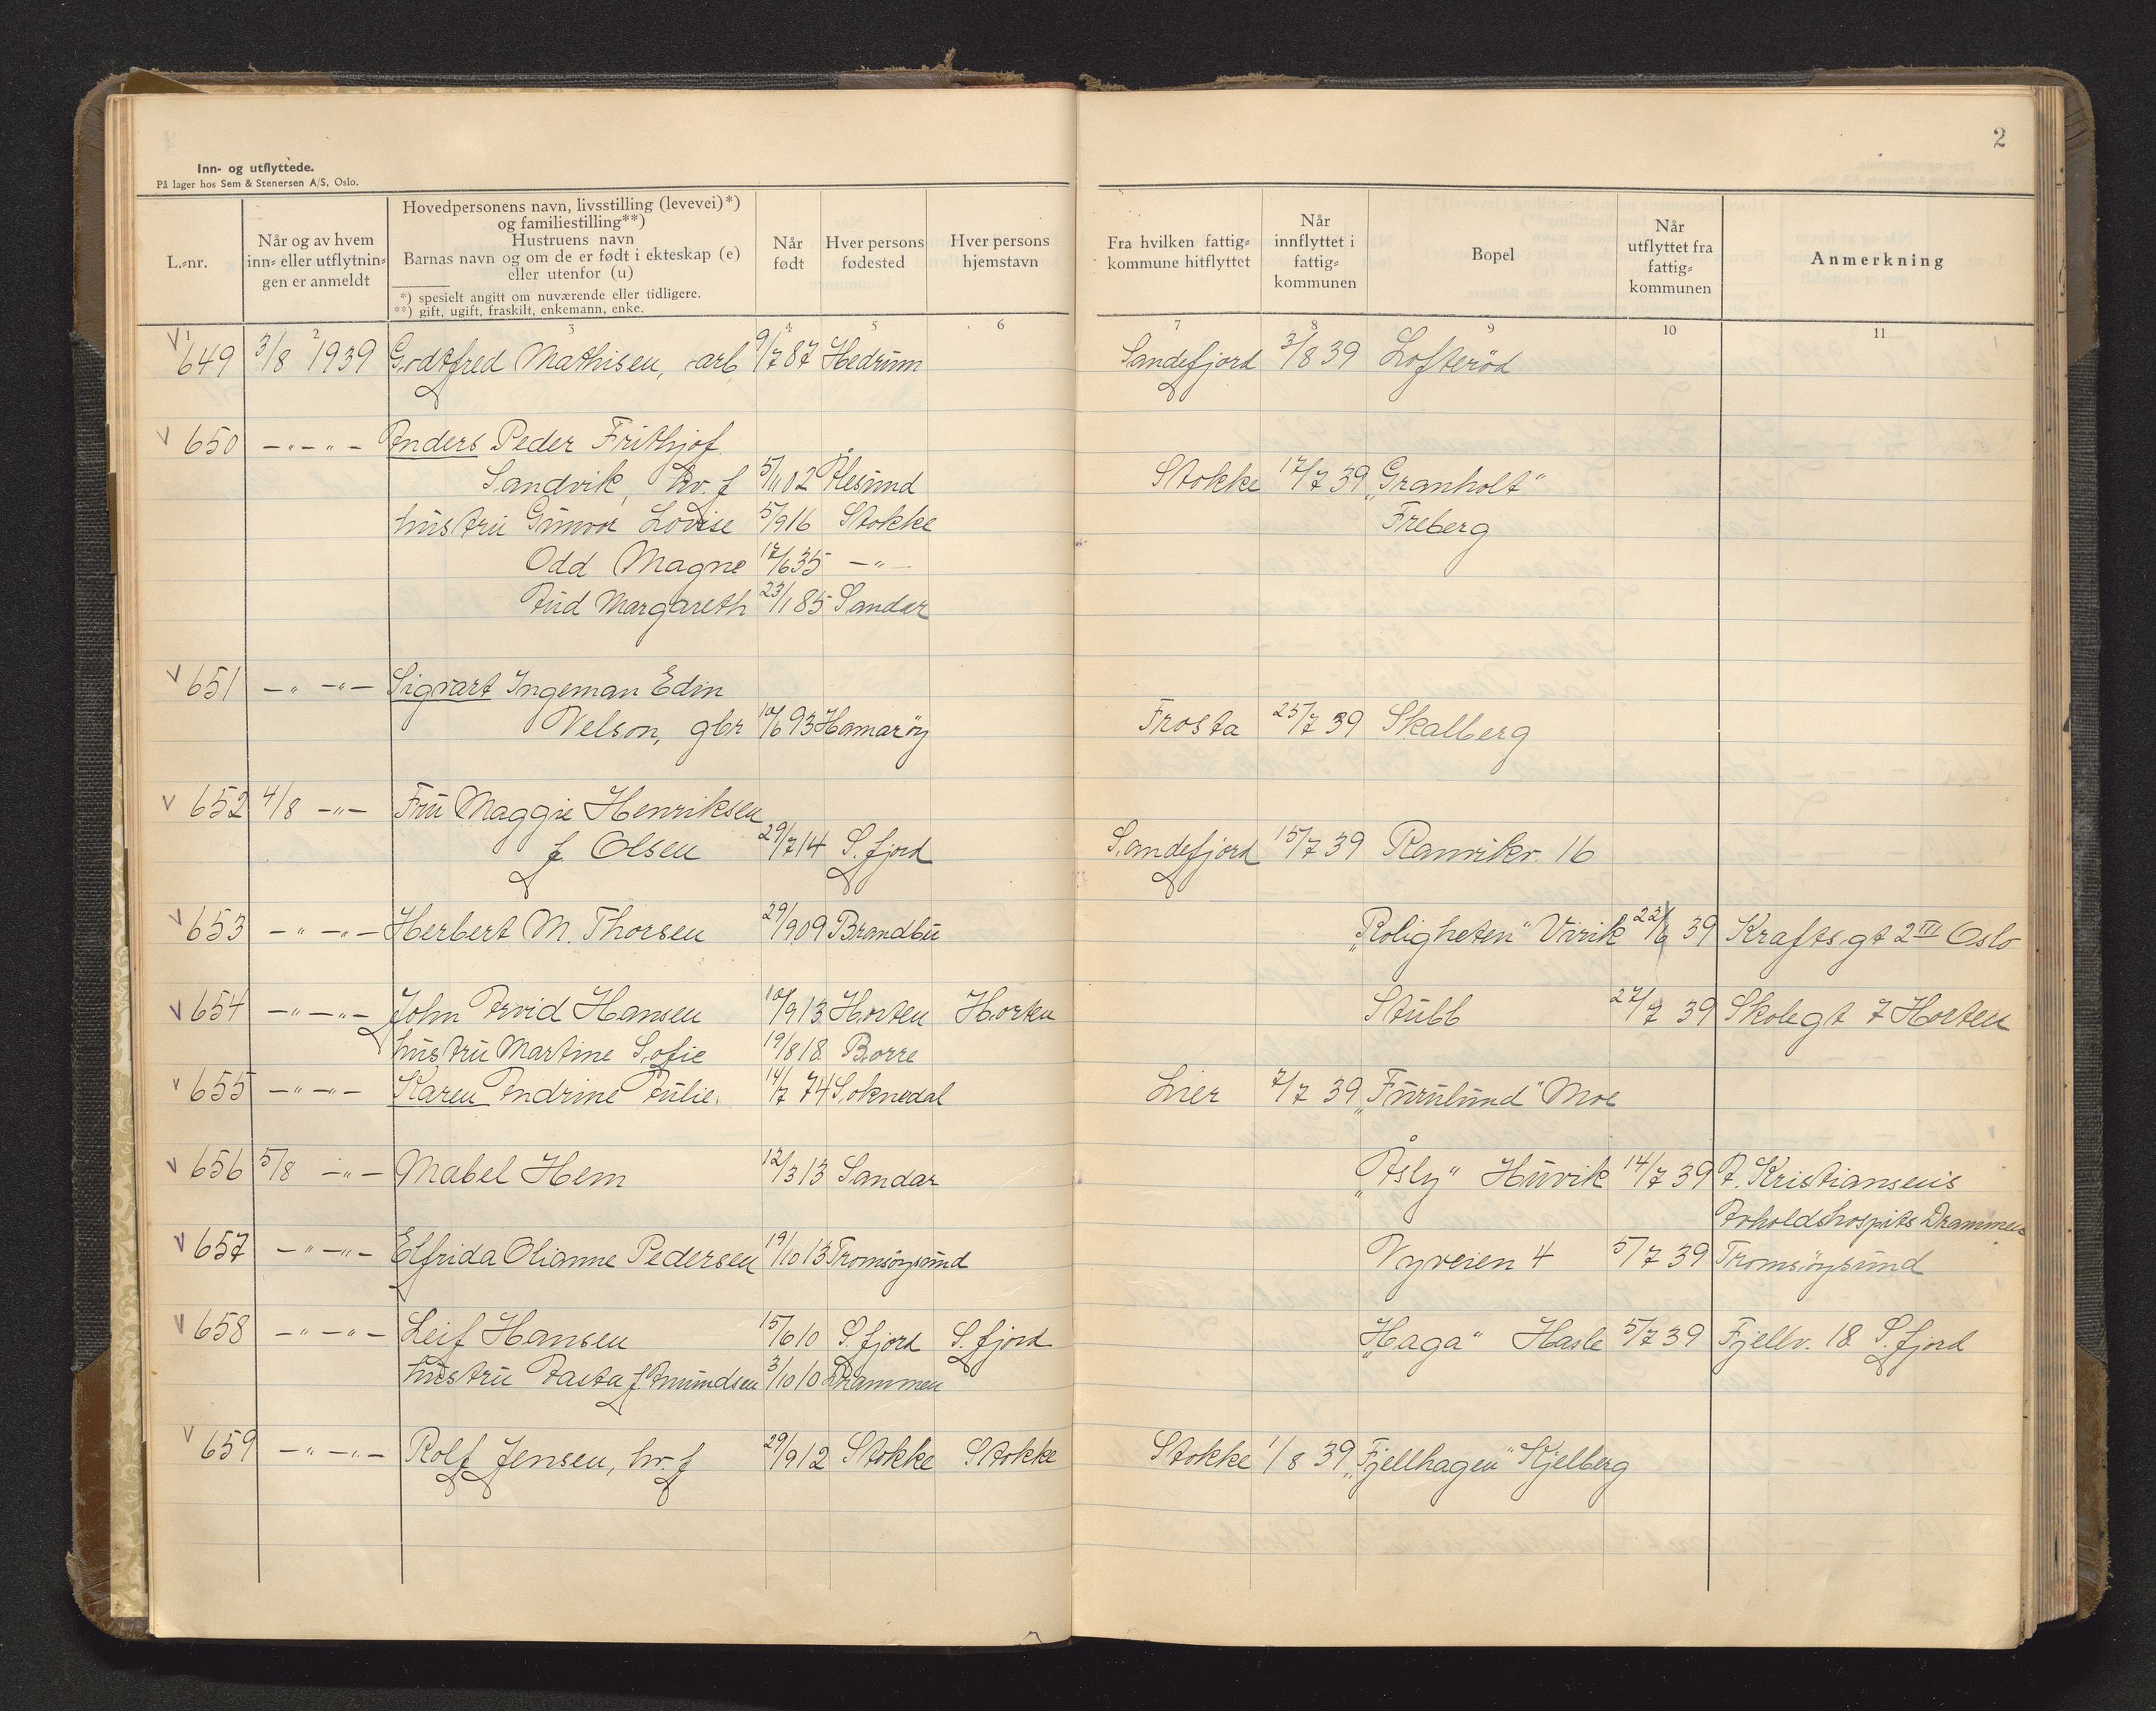 2
Inn- og utflyttede.
På lager hos Sem & Stenersen A/S, Oslo.
L.-nr.
Når og av hvem inn- eller utflytningen er anmeldt
Hovedpersonens navn, livsstilling (levevei)*)
og familiestilling**)
Hustruens navn
Barnas navn og om de er født i ekteskap (e)
eller utenfor (u)
*) spesielt angitt om nuværende eller tidligere.
**) gift, ugift, fraskilt, enkemann, enke.
Når født
Hver persons fødested
Hver persons hjemstavn
Fra hvilken fattigkommune hitflyttet
Når innflyttet i fattigkommunen
Bopel
Når utflyttet fra fattigkommunen
Anmerkning
1 2 3 4 5 6 7 8 9 10 11
V 649 3/8 1939 Godtfred Mathisen, arb 9/7 87 Hedrum Sandefjord 3/8 39 Lofterød
V 650 -"-"- Anders Peder Frithjof
Sandvik, hv. f 5/11 02 Ålesund Stokke 17/7 39 „Granholt"
hustru Gunvor Lovise 5/9 16 Stokke Freberg
Odd Magne 17/6 35 -"-
Aud Margareth 23/1 85 Sandar
V 651 -"-"- Sigvart Ingeman Edin
Nelson, gbr 10/6 93 Hamarøy Frosta 25/7 39 Skalberg
V 652 4/8 -"- Fru Maggie Henriksen
f. Olsen 29/7 14 S.fjord Sandefjord 15/7 39 Ranvikv. 16
V 653 -"-"- Herbert M. Thorsen 29/9 09 Brandbu „Roligheten" Virik 22/6 39 Krafts gt 2 III Oslo
V 654 -"-"- John Arvid Hansen 10/9 13 Horten Horten Stubb 27/7 39 Skolegt 7 Horten
hustru Martine Sofie 19/8 18 Borre
V 655 -"-"- Karen Andrine Julie. 14/7 74 Soknedal Lier 7/7 39 „Furulund" Moe
V 656 5/8 -"- Mabel Hem 12/3 13 Sandar „Åsly" Huvik 14/7 39 A. Kristiansens
Avholdshospits Drammen
V 657 -"-"- Elfrida Olianne Pedersen 19/10 13 Tromsøysund Nyveien 4 5/7 39 Tromsøysund
V 658 -"-"- Leif Hansen 15/6 10 S.fjord S.fjord „Haga" Hasle 5/7 39 Fjellv. 18 S.fjord
hustru Aasta f. Amundsen 3/10 10 Drammen
V 659 -"-"- Rolf Jensen, hv. f 29/9 12 Stokke Stokke Stokke 1/8 39 „Fjellhagen" Kjelberg